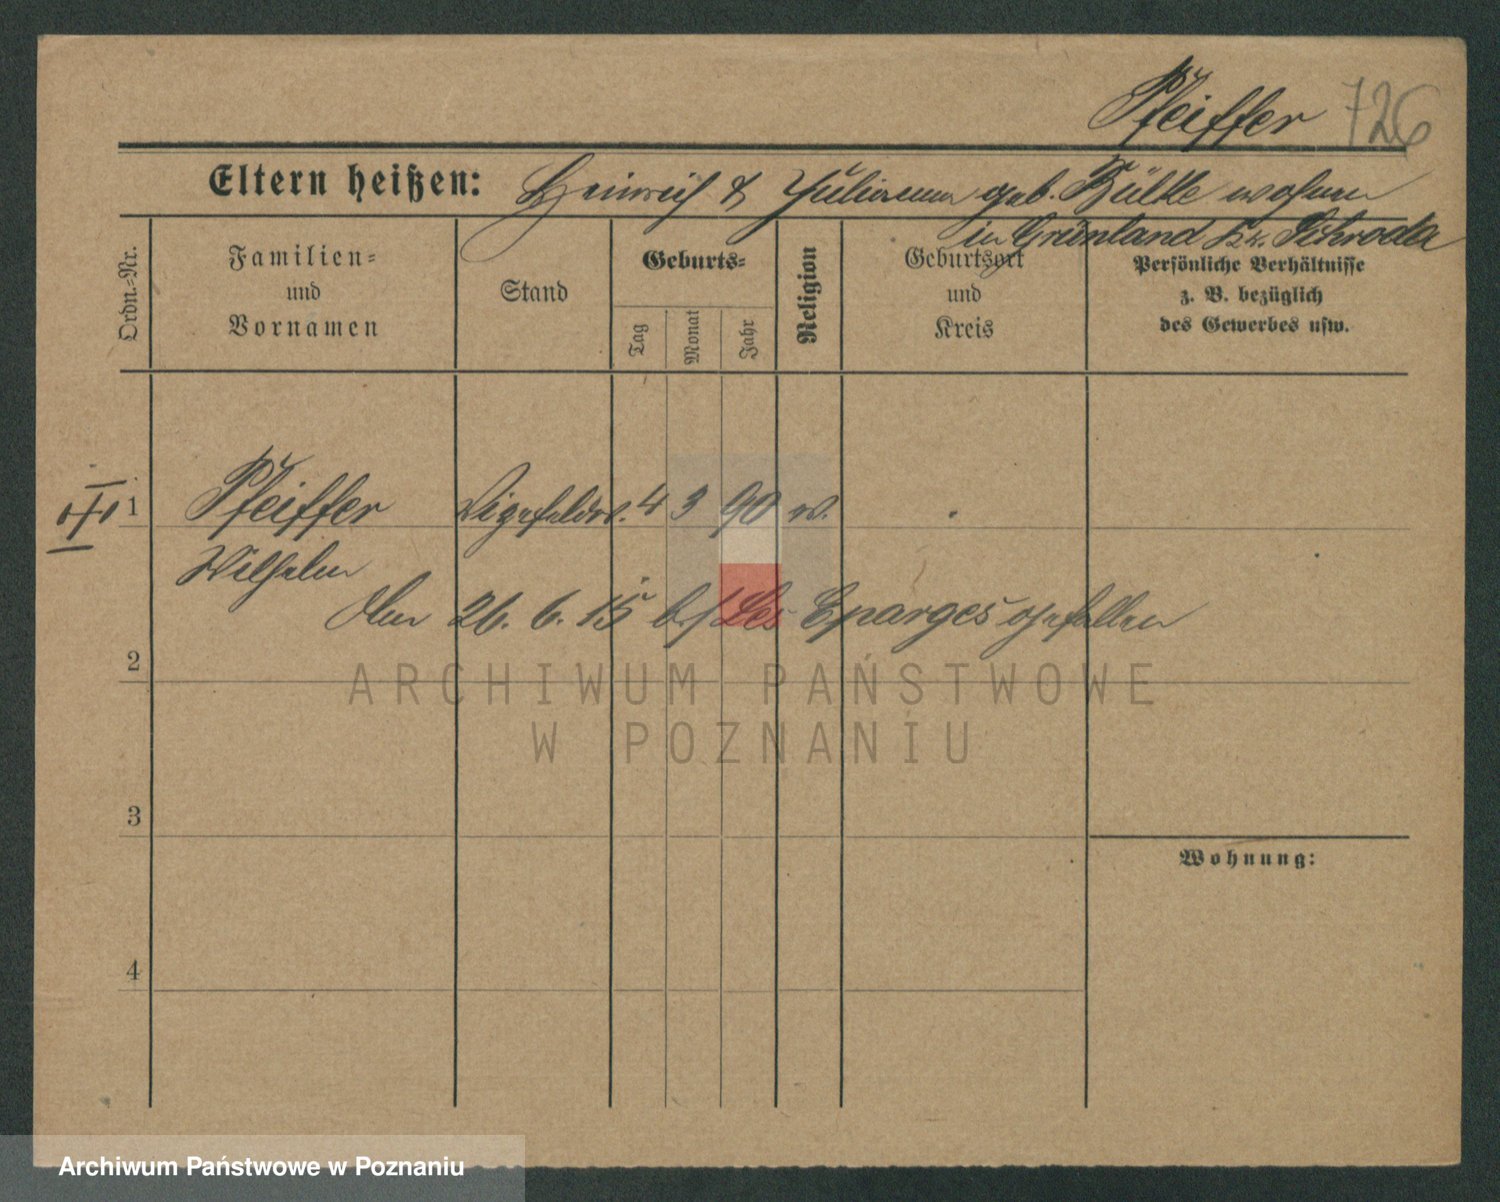 Pfeiffer 726
Eltern heißen: Heinrich & Julianna geb. Bülke wohnen
in Grünland Kr. Schroda
Ordn.-Nr.
Familien-
und
Vornamen
Stand
Geburts-
Tag
Monat
Jahr
Religion
Geburtsort
und
Kreis
Persönliche Verhältnisse
z. B. bezüglich
des Gewerbes usw.
1 Pfeiffer Vizefeldw. 4 3 90
Wilhelm
Am 26. 6. 15 b. Les Eparges gefallen
2
ARCHIWUM PAŃSTWOWE
W POZNANIU
3
Wohnung:
4
Archiwum Państwowe w Poznaniu